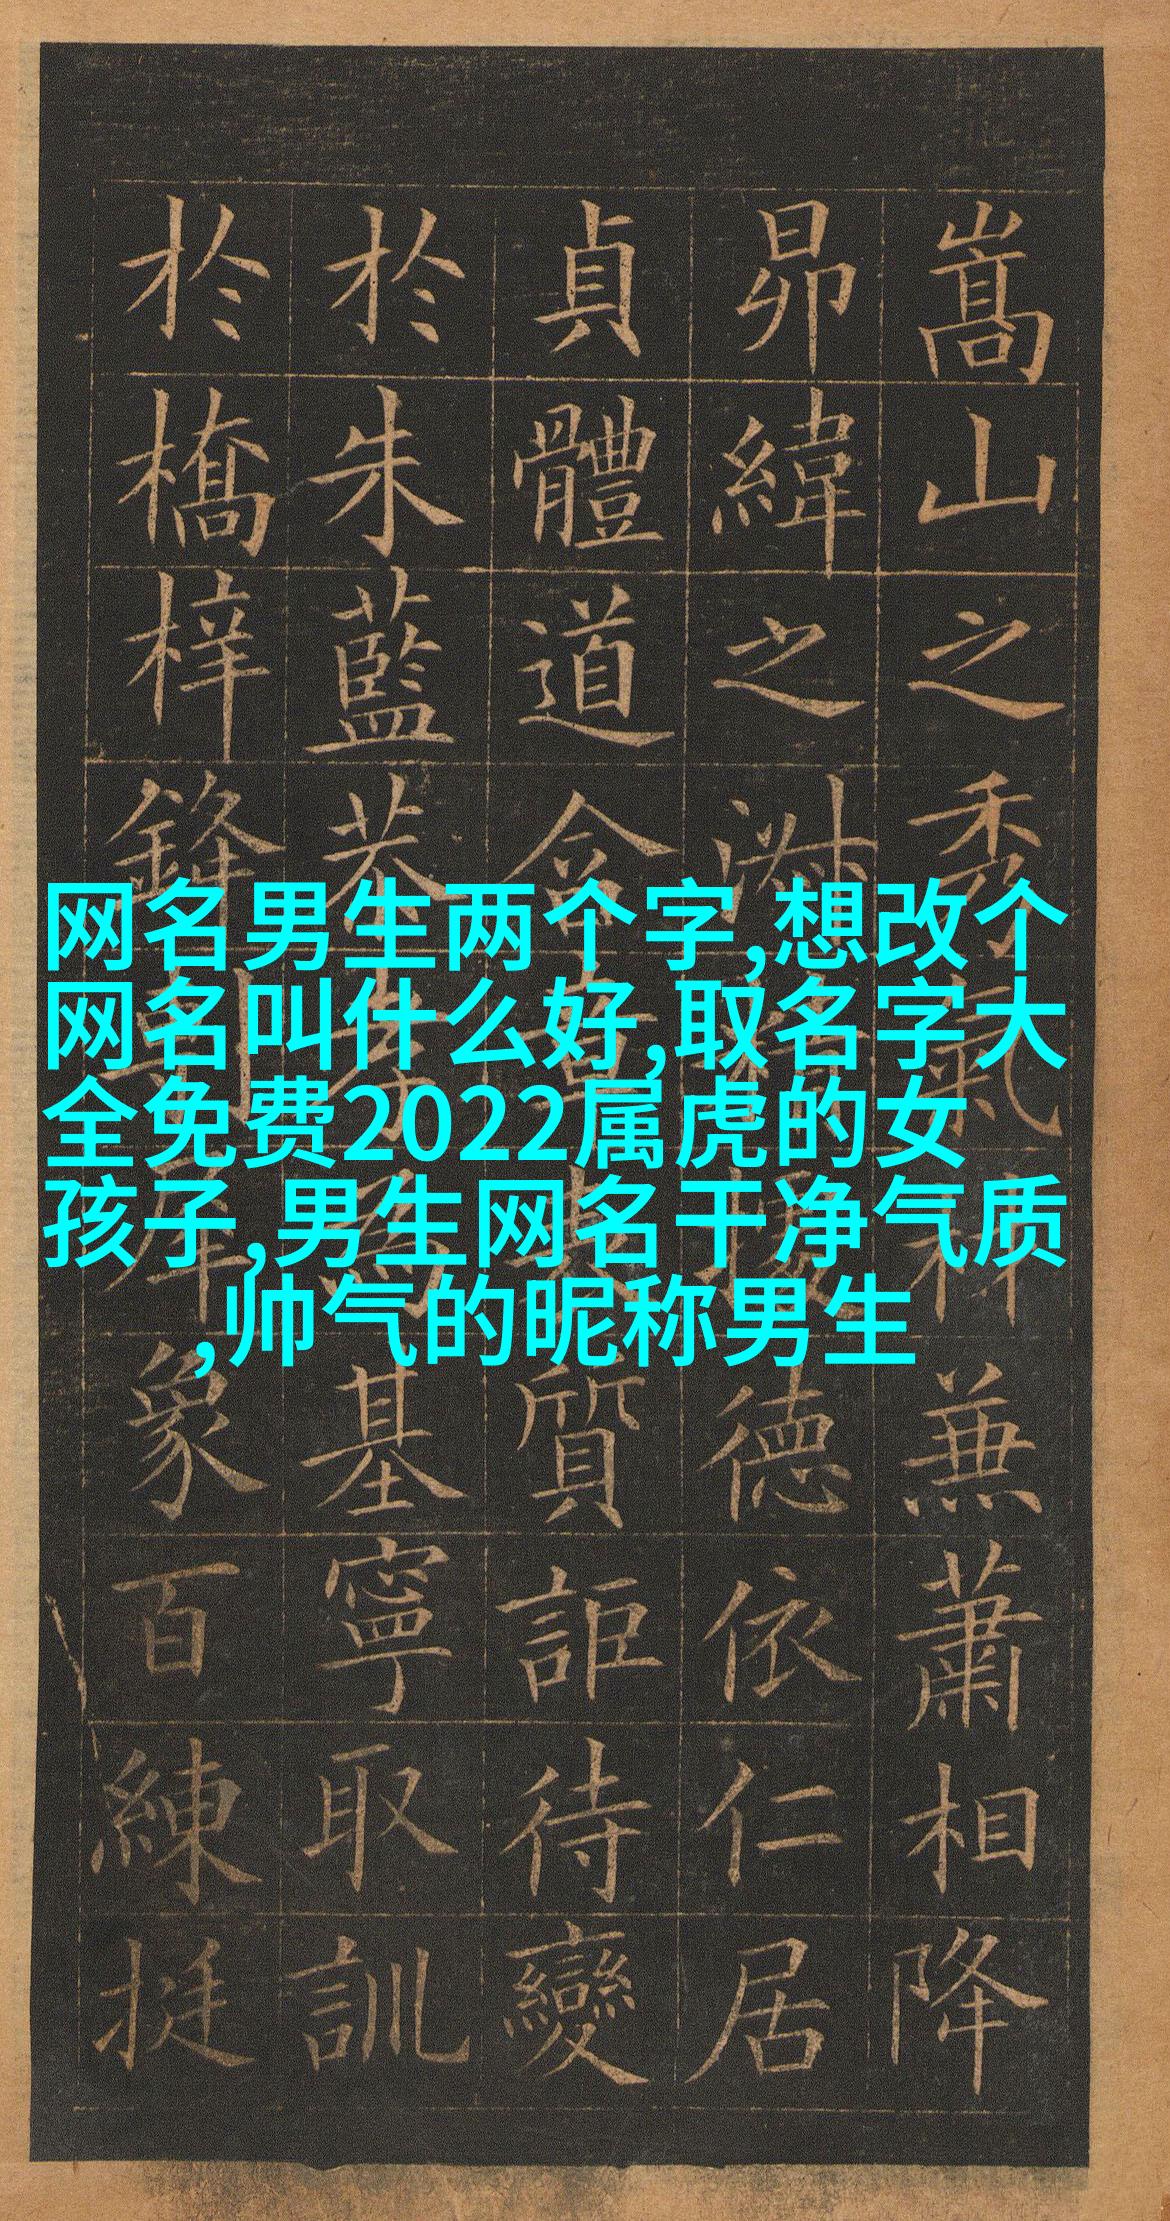 嵩山之秀氣兼蕭相降
昴緯之淑德依仁居
貞體道含質詎待變
於朱藍恭基寧取訓
於橋梓鋒犀象百練挺
网名男生两个字,想改个
网名叫什么好,取名字大
全免费2022属虎的女
孩子,男生网名干净气质
,帅气的昵称男生